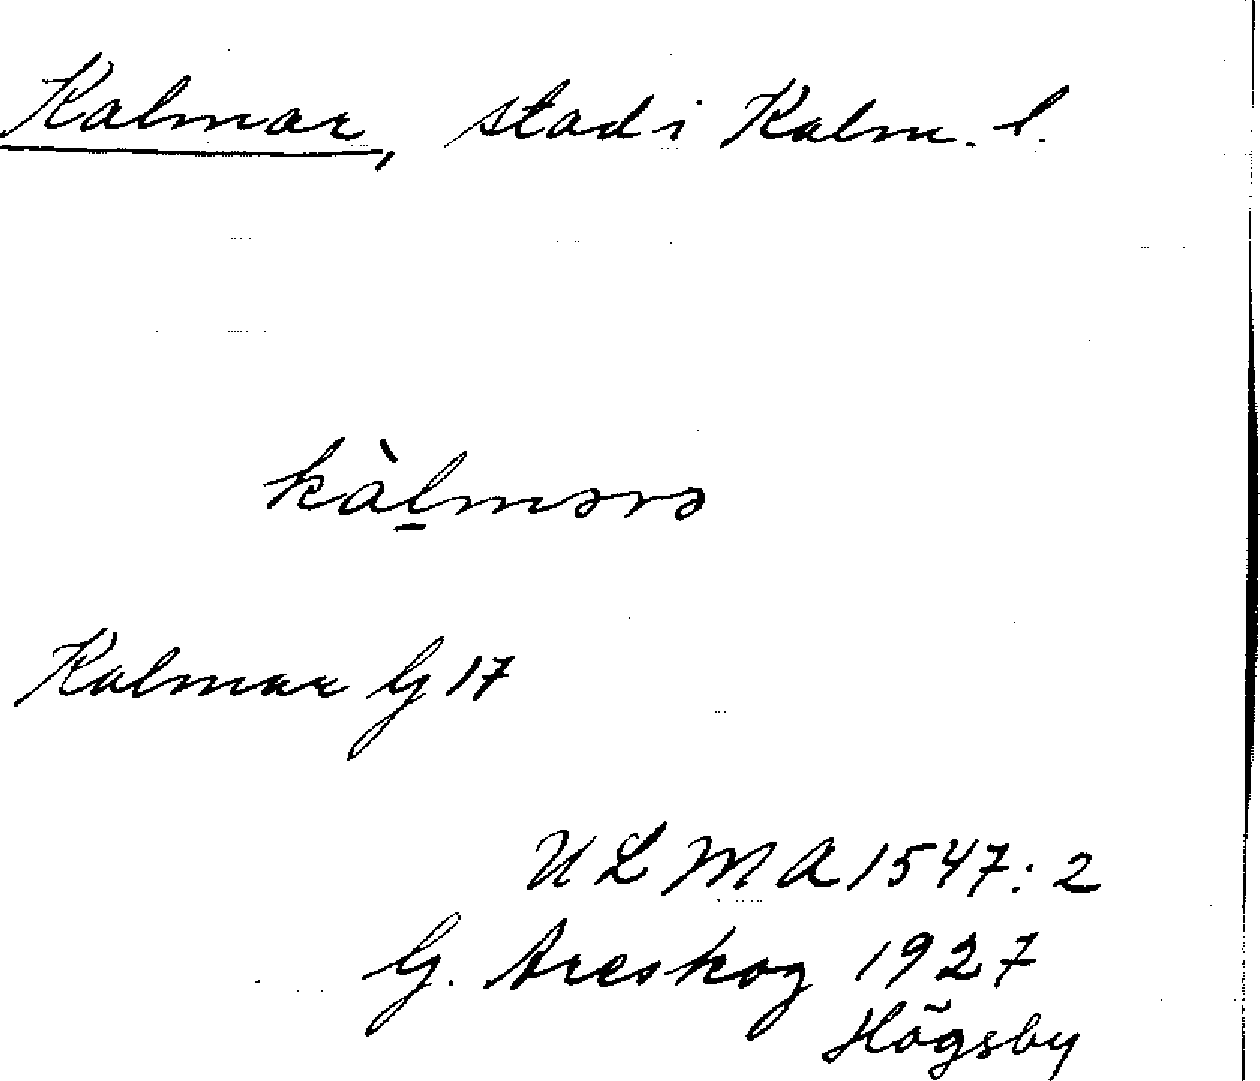 Kalmar, stad i Kalm. l.
kàl̠mərə
Kalmar G 17
ULMA 1547:2
G. Areskog 1927
Högsby